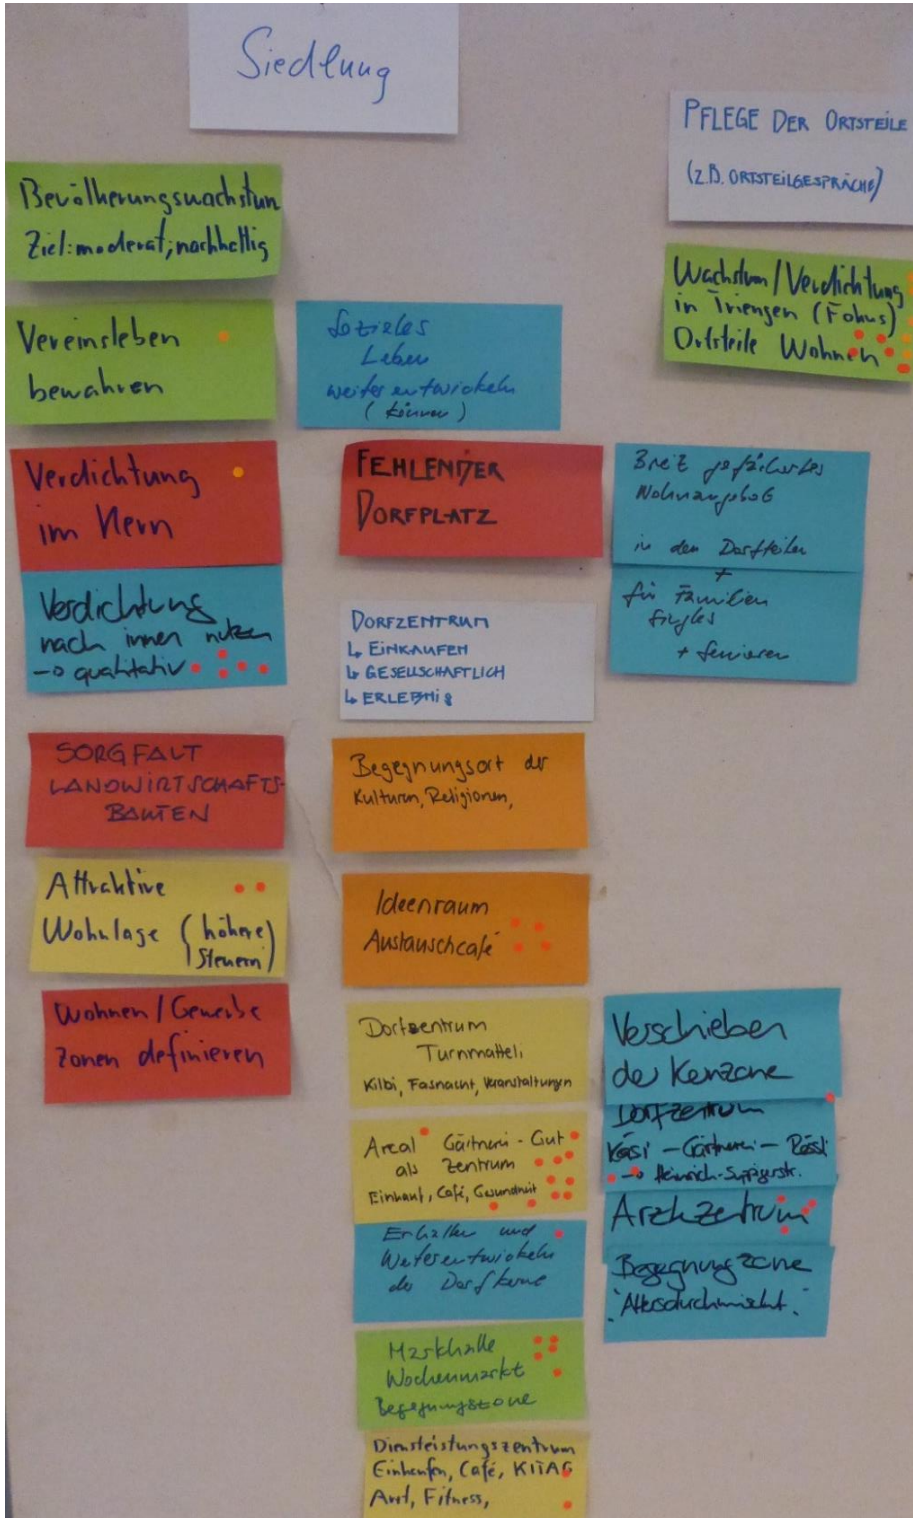 Siedlung
Bevölkerungswachstum
Ziel: moderat, nachhaltig
Vereinsleben
bewahren
Verdichtung
im Kern
Verdichtung
nach innen nutzen
→ qualitativ
SORGFALT
LANDWIRTSCHAFTS-
BAUTEN
Attraktive
Wohnlage (höhere
Steuern)
Wohnen/Gewerbe
zonen definieren
Soziales
Leben
weiter entwickeln
(können)
FEHLENDER
DORFPLATZ
DORFZENTRUM
↳ EINKAUFEN
↳ GESELLSCHAFTLICH
↳ ERLEBNIS
Begegnungsort der
Kulturen, Religionen,
Ideenraum
Austauschcafé
Dorfzentrum
Turnmatteli
Kilbi, Fasnacht, Veranstaltungen
Areal Gärtnerei-Gut
als Zentrum
Einkauf, Café, Gesundheit
Erhalten und
Weiterentwickeln
der Dorfkerne
Markthalle
Wochenmarkt
Begegnungszone
Dienstleistungszentrum
Einkaufen, Café, KITAG
Arzt, Fitness,
PFLEGE DER ORTSTEILE
(Z.B. ORTSTEILGESPRÄCHE)
Wachstum/Verdichtung
in Triengen (Fokus)
Ortsteile Wohnen
Breit gefächertes
Wohnangebot
in den Dorfteilen
+
für Familien
Singles
+ Senioren
Verschieben
der Kernzone
Dorfzentrum
Käsi – Gärtnerei – Rössli
→ Heinrich-Suppigerstr.
Arztzentrum
Begegnungzone
"Altersdurchmischt"